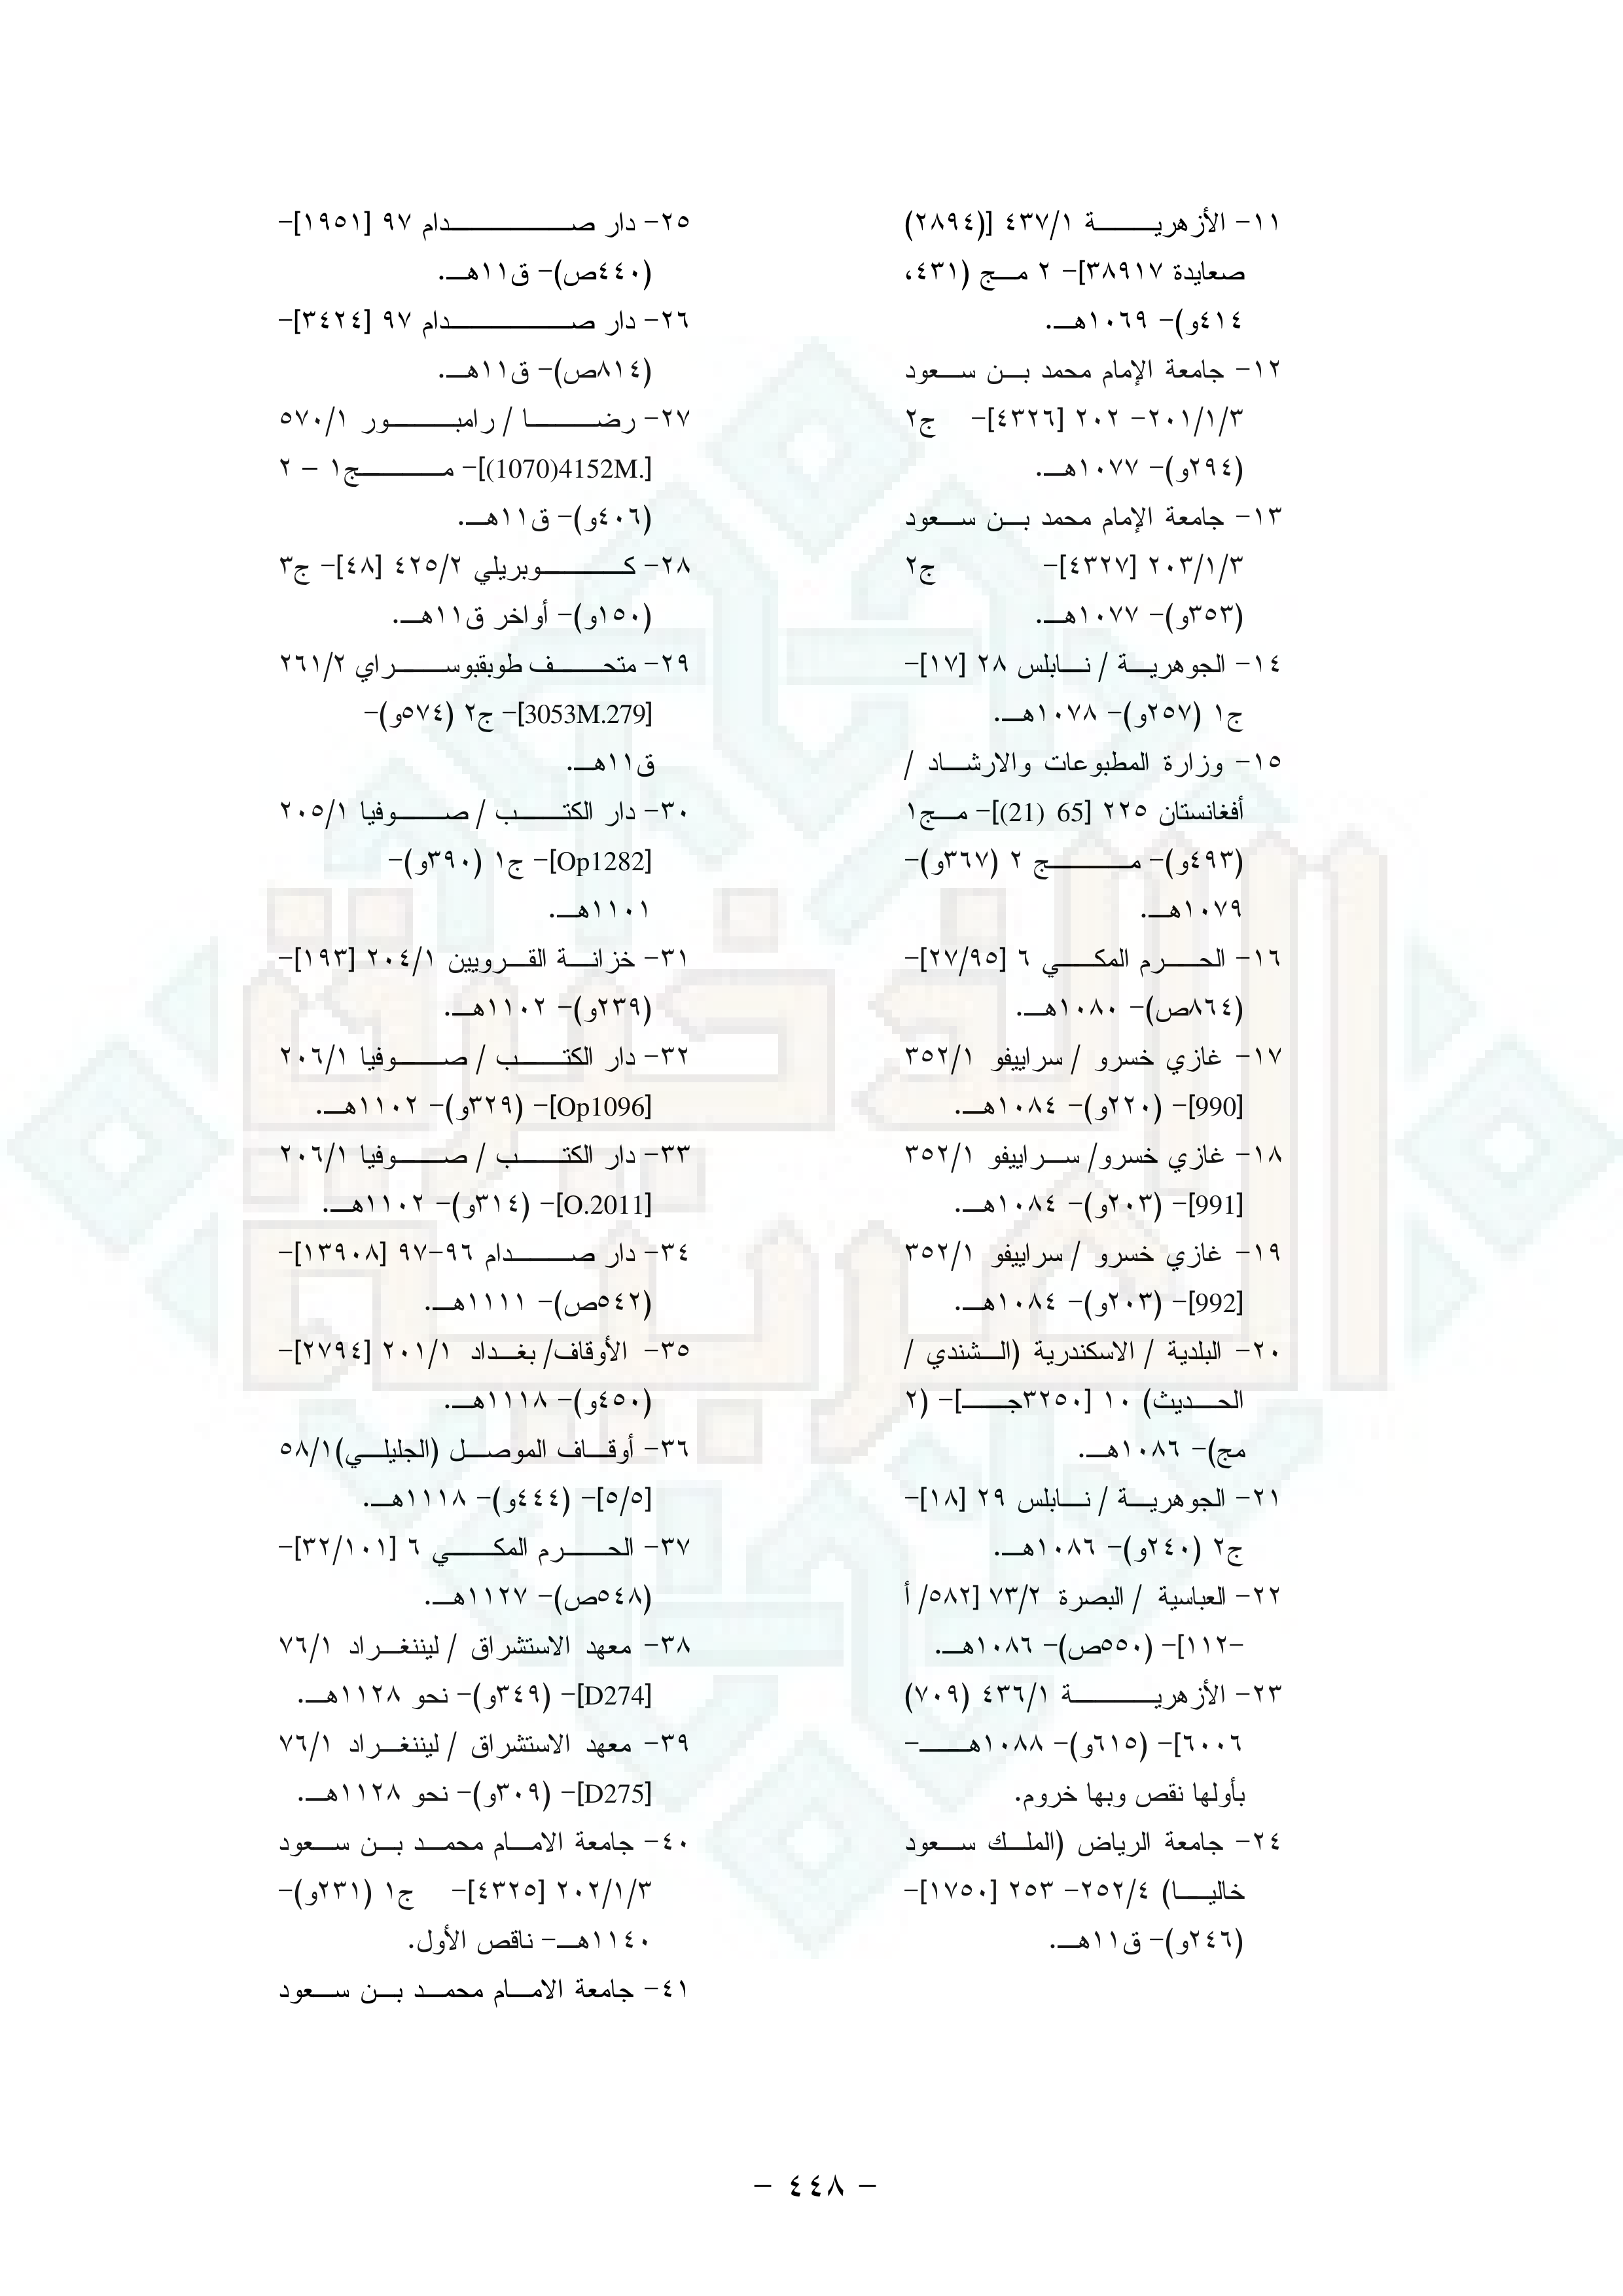 ١١- الأزهرية ٤٣٧/١ [(٢٨٩٤)
صعايدة ٣٨٩١٧]- ٢ مج (٤٣١،
٤١٤و)- ١٠٦٩هـ.
١٢- جامعة الإمام محمد بن سعود
٢٠١/١/٣- ٢٠٢ [٤٣٢٦]- ج٢
(٢٩٤و)- ١٠٧٧هـ.
١٣- جامعة الإمام محمد بن سعود
٢٠٣/١/٣ [٤٣٢٧]- ج٢
(٣٥٣و)- ١٠٧٧هـ.
١٤- الجوهرية / نابلس ٢٨ [١٧]-
ج١ (٢٥٧و)- ١٠٧٨هـ.
١٥- وزارة المطبوعات والارشاد /
أفغانستان ٢٢٥ [65 (21)]- مج١
(٤٩٣و)- مج ٢ (٣٦٧و)-
١٠٧٩هـ.
١٦- الحرم المكي ٦ [٢٧/٩٥]-
(٨٦٤ص)- ١٠٨٠هـ.
١٧- غازي خسرو / سراييفو ٣٥٢/١
[990]- (٢٢٠و)- ١٠٨٤هـ.
١٨- غازي خسرو/ سراييفو ٣٥٢/١
[991]- (٢٠٣و)- ١٠٨٤هـ.
١٩- غازي خسرو / سراييفو ٣٥٢/١
[992]- (٢٠٣و)- ١٠٨٤هـ.
٢٠- البلدية / الاسكندرية (الشندي /
الحديث) ١٠ [٣٢٥٠جـ]- (٢
مج)- ١٠٨٦هـ.
٢١- الجوهرية / نابلس ٢٩ [١٨]-
ج٢ (٢٤٠و)- ١٠٨٦هـ.
٢٢- العباسية / البصرة ٧٣/٢ [٥٨٢/ أ
-١١٢]- (٥٥٠ص)- ١٠٨٦هـ.
٢٣- الأزهرية ٤٣٦/١ (٧٠٩)
٦٠٠٦]- (٦١٥و)- ١٠٨٨هـ-
بأولها نقص وبها خروم.
٢٤- جامعة الرياض (الملك سعود
خاليا) ٢٥٢/٤- ٢٥٣ [١٧٥٠]-
(٢٤٦و)- ق١١هـ.
٢٥- دار صدام ٩٧ [١٩٥١]-
(٤٤٠ص)- ق١١هـ.
٢٦- دار صدام ٩٧ [٣٤٢٤]-
(٨١٤ص)- ق١١هـ.
٢٧- رضا / رامبور ٥٧٠/١
[(1070)4152M.]- مج١ – ٢
(٤٠٦و)- ق١١هـ.
٢٨- كوبريلي ٤٢٥/٢ [٤٨]- ج٣
(١٥٠و)- أواخر ق١١هـ.
٢٩- متحف طوبقبوسراي ٢٦١/٢
[3053M.279]- ج٢ (٥٧٤و)-
ق١١هـ.
٣٠- دار الكتب / صوفيا ٢٠٥/١
[Op1282]- ج١ (٣٩٠و)-
١١٠١هـ.
٣١- خزانة القرويين ٢٠٤/١ [١٩٣]-
(٢٣٩و)- ١١٠٢هـ.
٣٢- دار الكتب / صوفيا ٢٠٦/١
[Op1096]- (٣٢٩و)- ١١٠٢هـ.
٣٣- دار الكتب / صوفيا ٢٠٦/١
[O.2011]- (٣١٤و)- ١١٠٢هـ.
٣٤- دار صدام ٩٦-٩٧ [١٣٩٠٨]-
(٥٤٢ص)- ١١١١هـ.
٣٥- الأوقاف/ بغداد ٢٠١/١ [٢٧٩٤]-
(٤٥٠و)- ١١١٨هـ.
٣٦- أوقاف الموصل (الجليلي)٥٨/١
[٥/٥]- (٤٤٤و)- ١١١٨هـ.
٣٧- الحرم المكي ٦ [٣٢/١٠١]-
(٥٤٨ص)- ١١٢٧هـ.
٣٨- معهد الاستشراق / ليننغراد ٧٦/١
[D274]- (٣٤٩و)- نحو ١١٢٨هـ.
٣٩- معهد الاستشراق / ليننغراد ٧٦/١
[D275]- (٣٠٩و)- نحو ١١٢٨هـ.
٤٠- جامعة الامام محمد بن سعود
٢٠٢/١/٣ [٤٣٢٥]- ج١ (٢٣١و)-
١١٤٠هـ- ناقص الأول.
٤١- جامعة الامام محمد بن سعود
- ٤٤٨ -